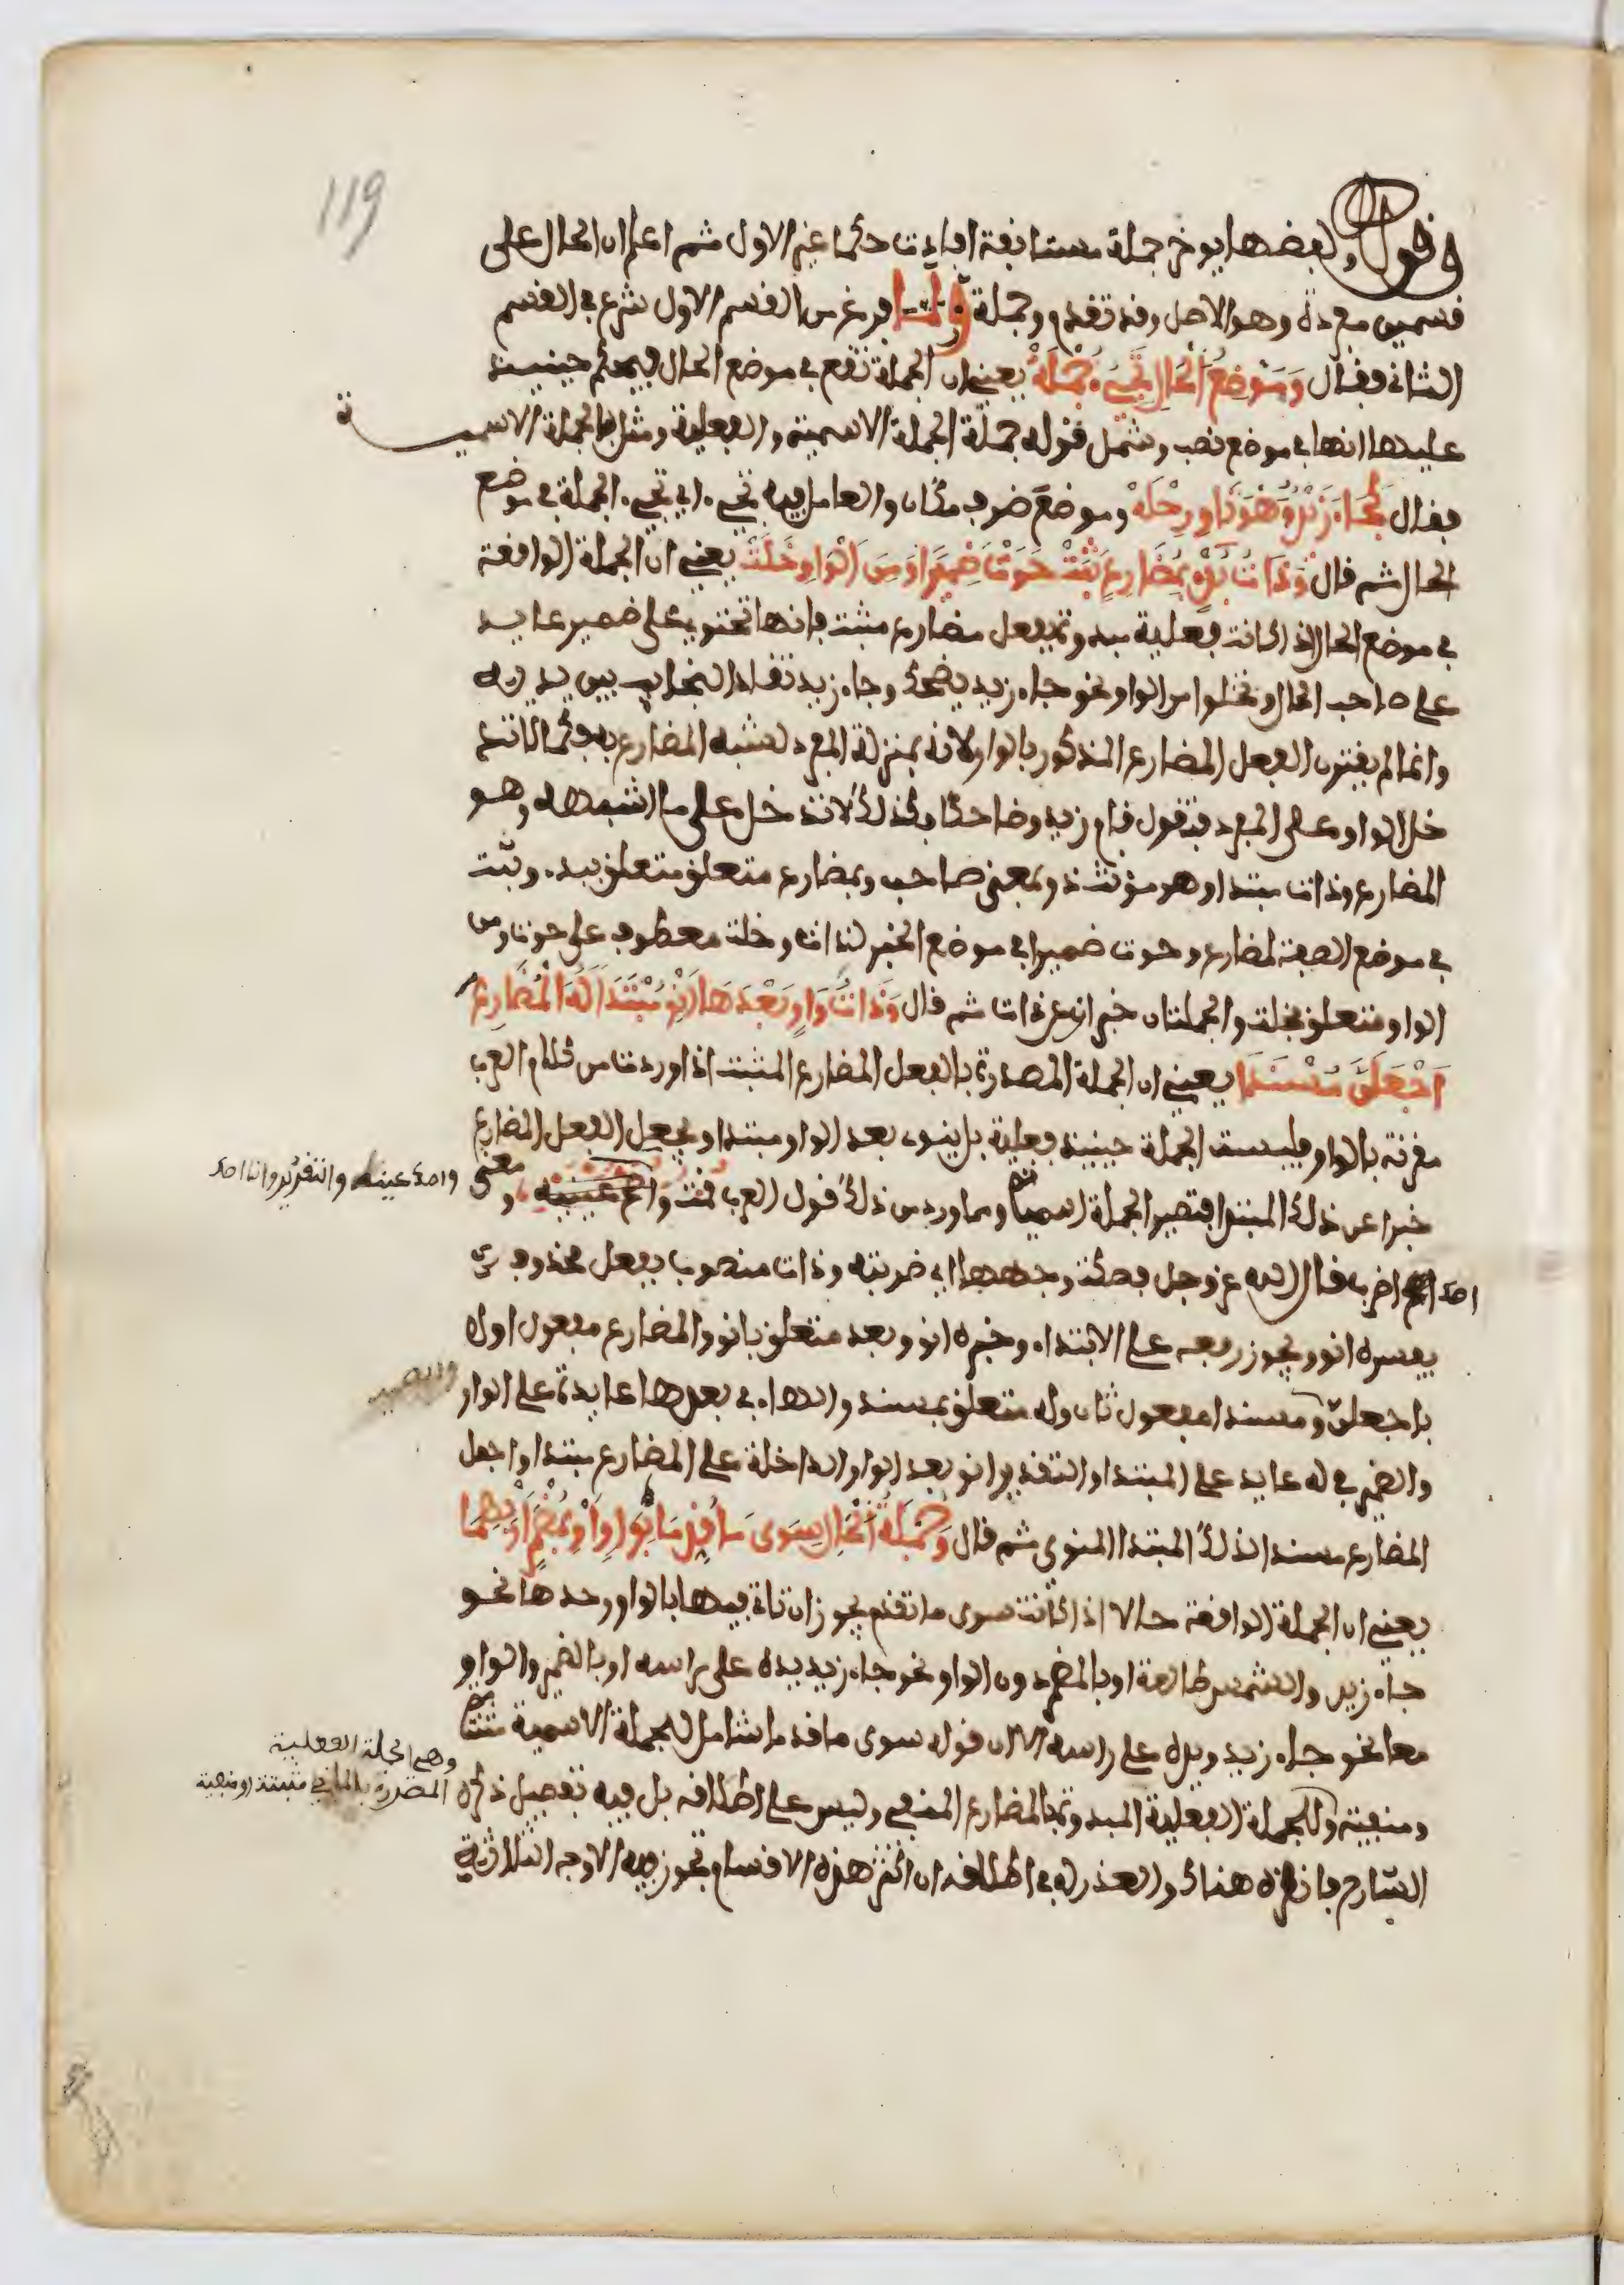 119
وقوله ولفظها يؤخر جملة مستأنفة افادت حكما غير الاول ثم اعلم ان الحال على
قسمين مفردة وهو الاصل وقد تقدم وجملة ولما فرغ من القسم الاول شرع في القسم
الثاني فقال وَمَوْضِعَ الْحَالِ تَجِيءُ جُمْلَهْ يعني ان الجملة تقع في موضع الحال فيحكم حينئذ
عليها انها في موضع نصب وشمل قوله جملة الجملة الاسمية والفعلية ومثل بالجملة الاسمية
فقال كَجَاءَ زَيْدٌ وَهُوَ نَاوٍ رِحْلَهْ وموضع ظرف مكان والعامل فيه تجيء اي تجيء الجملة في موضع
الحال ثم قال وَذَاتُ بَدْءٍ بِمُضَارِعٍ ثَبَتْ حَوَتْ ضَمِيرًا وَمِنَ الْوَاوِ خَلَتْ يعني ان الجملة الواقعة
في موضع الحال اذا كانت فعلية مبدوءة بفعل مضارع مثبت فانها تحتوي على ضمير عايد
على صاحب الحال وتخلوا من الواو نحو جاء زيد يضحك وجاء زيد تقاد النجايب بين يديه
وانما لم يقترن الفعل المضارع المذكور بالواو لانه بمنزلة المفرد لشبه المضارع به فكما لا تد
خل الواو على المفرد فتقول قام زيد وضاحكا فكذلك لا تدخل على ما اشبهه وهو
المضارع وذات مبتدا وهو مؤنث ذو بمعنى صاحب وبمضارع متعلق متعلق ببدء وثبت
في موضع الصفة لمضارع وحوت ضميرا في موضع الخبر لذات وخلت معطوف على حوت ومن
الواو متعلق بخلت والجملتان خبر ان عن ذات ثم قال وَذَاتُ وَاوٍ بَعْدَهَا انْوِ مُبْتَدَا لَهُ الْمُضَارِعَ
اجْعَلَنَّ مُسْنَدَا يعني ان الجملة المصدرة بالفعل المضارع المثبت اذا وردت من كلام العرب
مقرنة بالواو فليست الجملة حينئذ فعلية بل ينوى بعد الواو مبتدا ويجعل الفعل المضارع
خبرا عن ذلك المبتدا فتصير الجملة اسمية ومما ورد من ذلك قول العرب قمت واصك عينه ومعنى
واصك عينه والتقدير وانا اصك
اصك اضرب قال الله عز وجل فصكت وجهها اي ضربته وذات منصوب بفعل محذوف
يفسره انو ويجوز رفعه على الابتداء وخبره انو وبعد متعلق بانو والمضارع مفعول اول
باجعلن ومسندا مفعول ثان وله متعلق بمسند والهاء في بعدها عايدة على الواو
والضمير
والضمير في له عايد على المبتدا والتقدير انو بعد الواو الداخلة على المضارع مبتدا واجعل
المضارع مسندا لذلك المبتدا المنوي ثم قال وَجُمْلَةُ الْحَالِ سِوَى مَا قُدِّمَا بِوَاوٍ اَوْ بِمُضْمَرٍ اَوْ بِهِمَا
يعني ان الجملة الواقعة حالا اذا كانت سوى ما تقدم يجوز ان تاتي فيها بالواو وحدها نحو
جاء زيد والشمس طالعة او بالمضمر دون الواو نحو جاء زيد يده على راسه او بالضمير والواو
معا نحو جاء زيد ويده على راسه الا ان قوله سوى ما قدما شامل للجملة الاسمية مثبتة
ومنفية وللجملة الفعلية المبدوءة بالمضارع المنفي وليس على اطلاقه بل فيه تفصيل ذكره
وهي الجملة الفعلية
المصدرة بالماضي مثبتة ومنفية
الشارح فانظره هناك والعذر له في اطلاقه ان اكثر هذه الاقسام تجوز فيه الاوجه الثلاثة